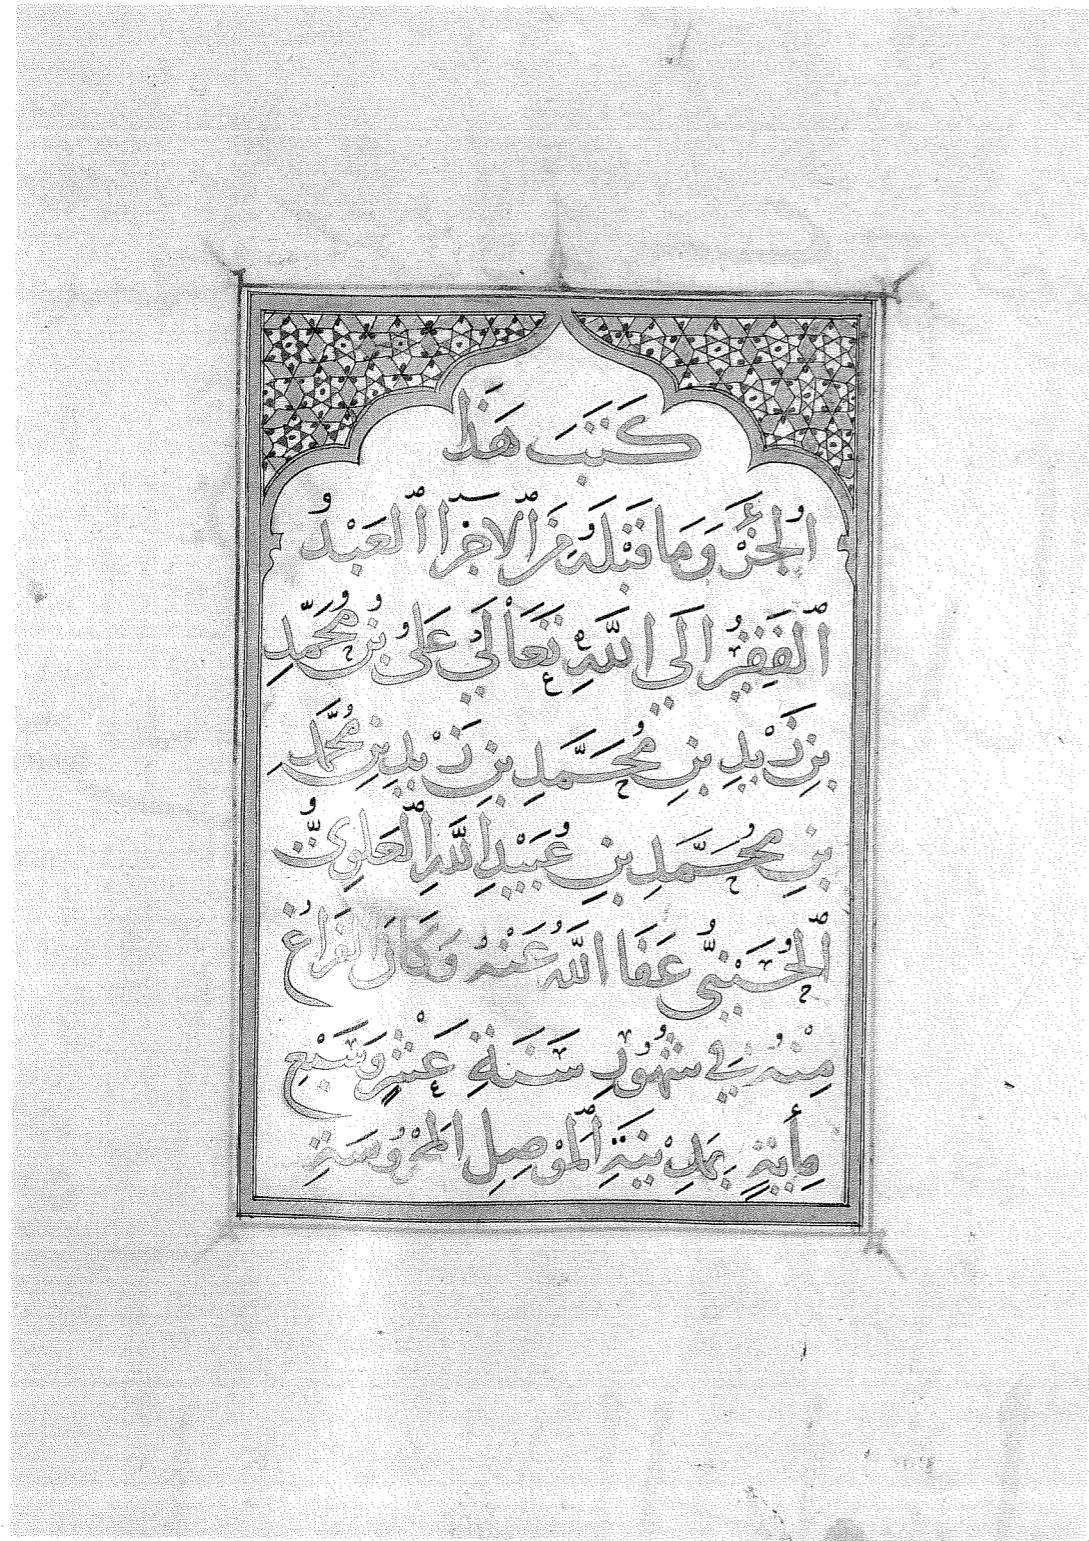 كَتَبَ هَذَا
الجُزْءَ وَمَا قَبْلَهُ مِنَ الاجزآ العَبْدُ
الفَقِيرُ الَى اللهِ تَعَالَى عَلىُّ بنُ مُحَمَّدِ
بنِ زَيْدِ بنِ مُحَمَّدِ بنِ زَيْدِ بنِ مُحَمَّدِ
بنِ مُحَمَّدِ بنِ عُبَيْدِ اللهِ العَلَوِىُّ
الحُسَيْنِىُّ عَفَا اللهُ عَنْهُ وَكَانَ الفَرَاغُ
مِنْهُ فِي شُهُورِ سَنَةِ عَشْرٍ وَسَبْعِ
مِأيَةٍ بِمَدِيْنَةِ المَوْصِلِ المَحْرُوسَةِ